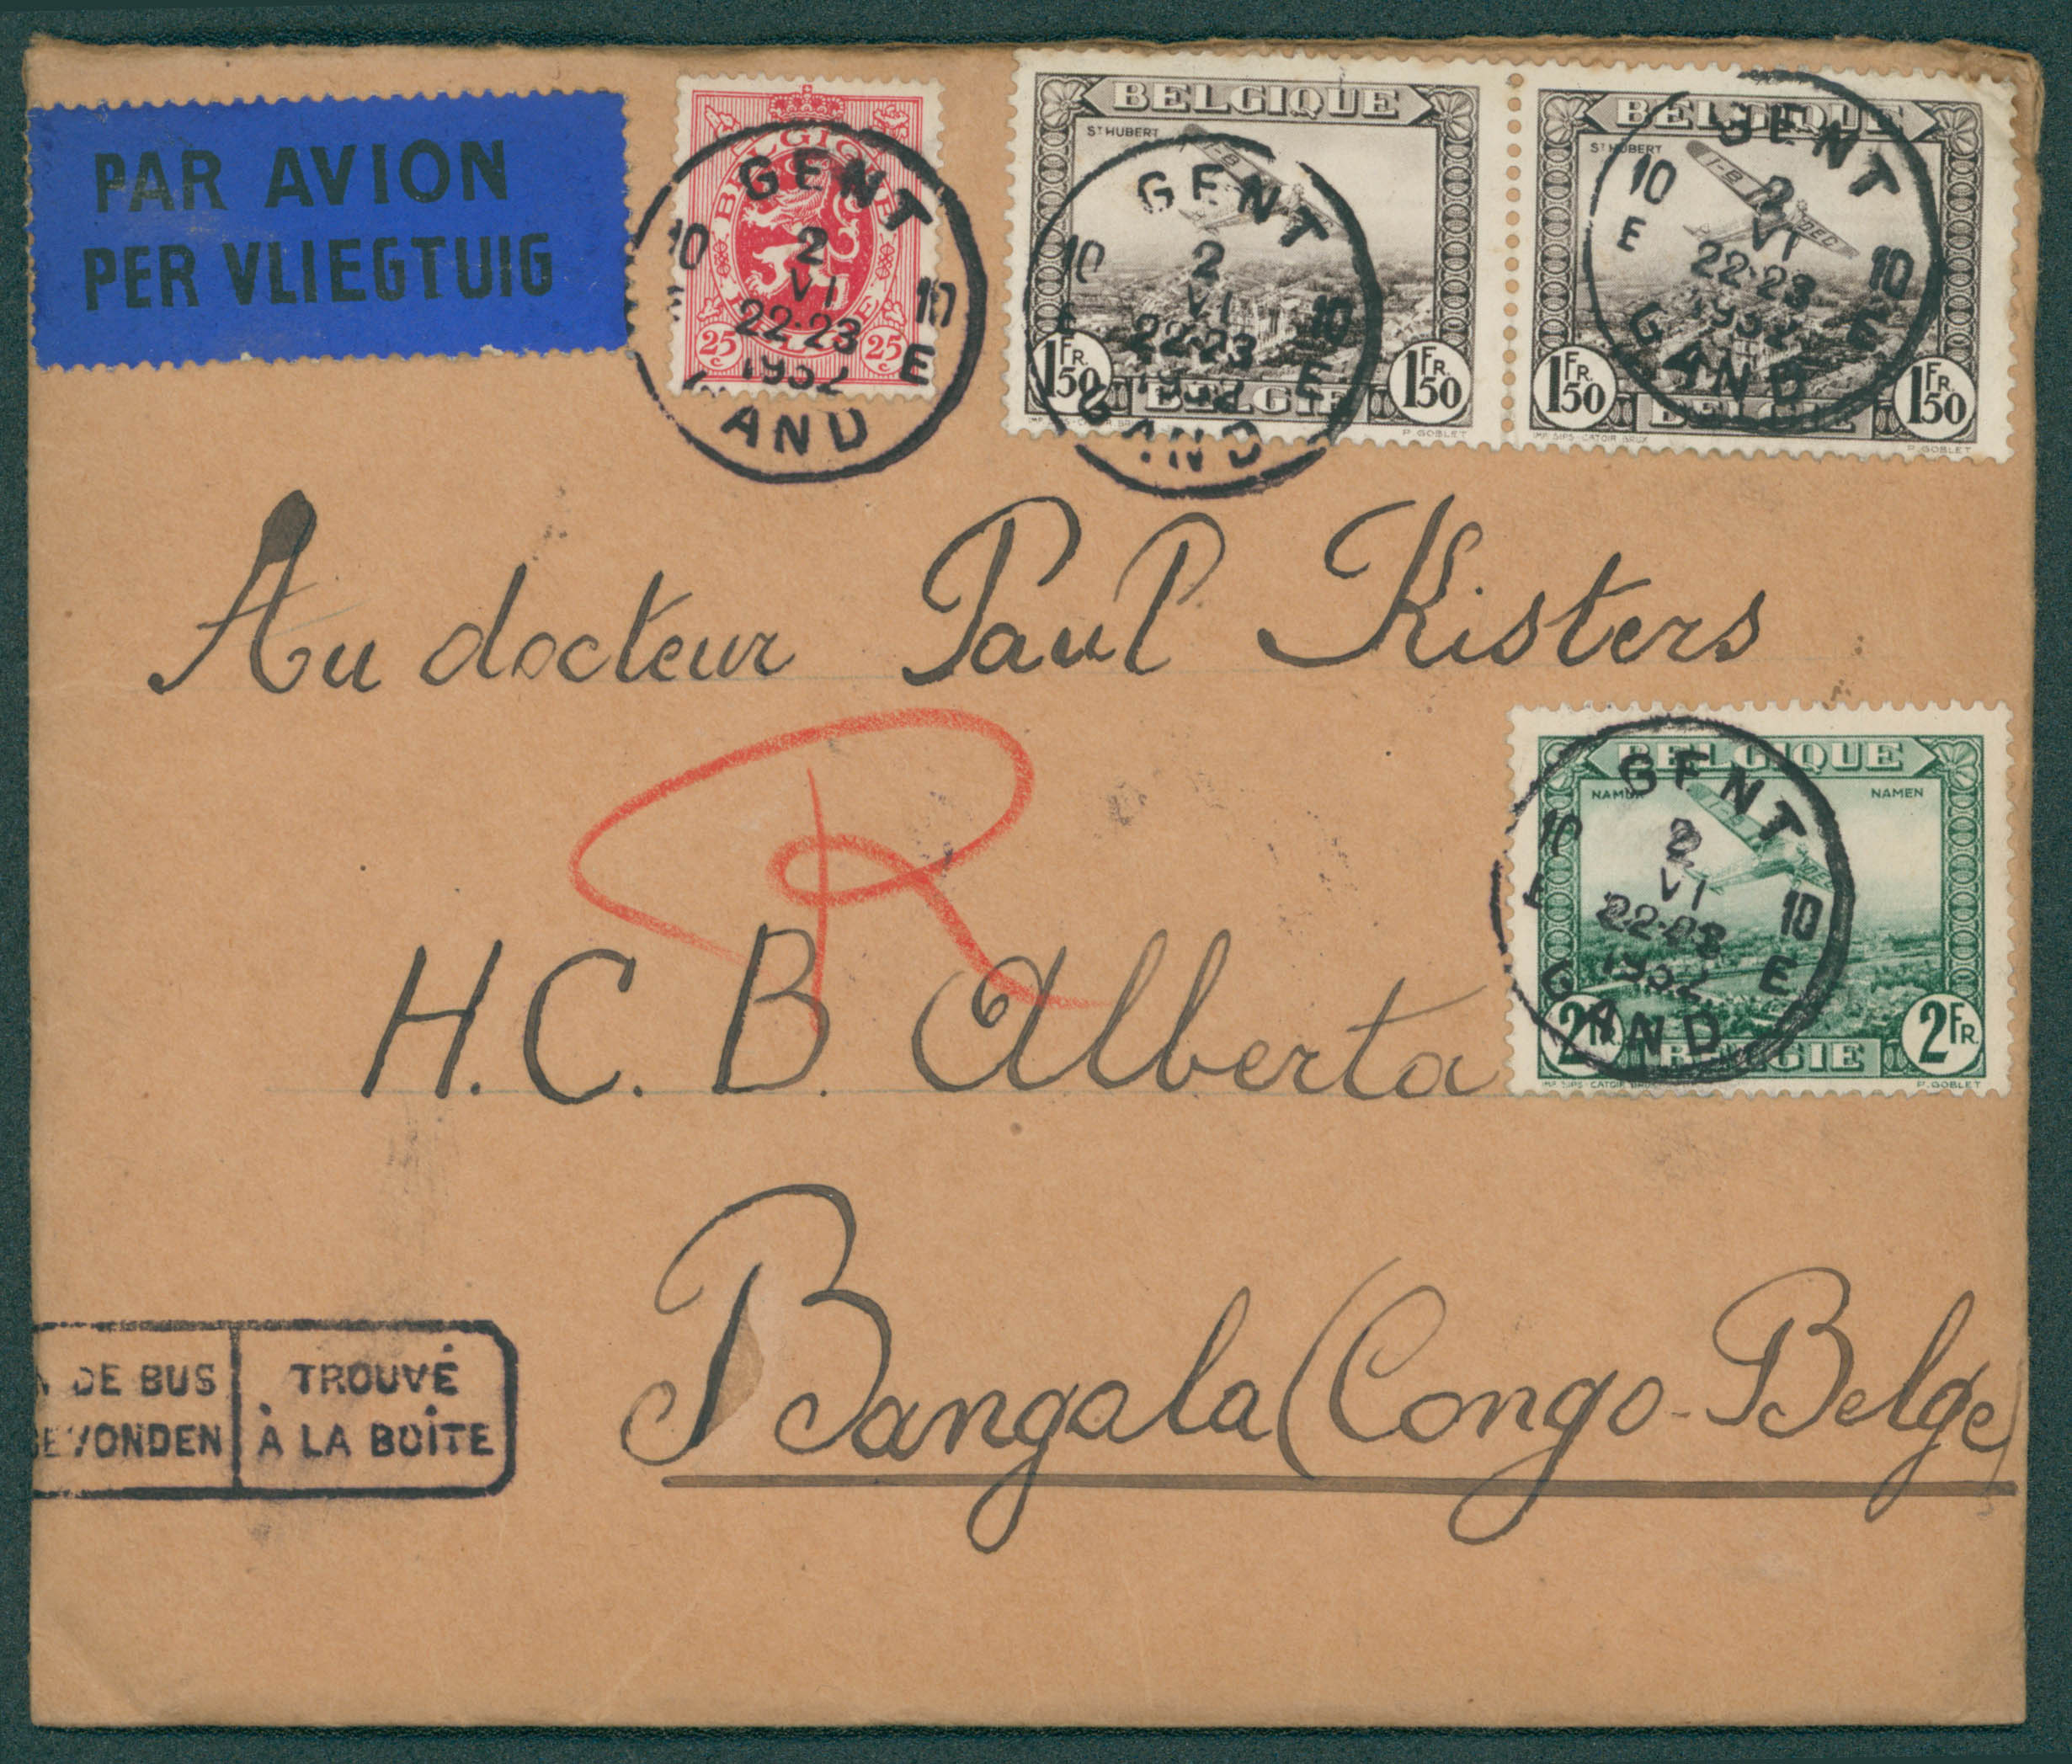 PAR AVION
PER VLIEGTUIG
BELGIQUE
25c 25c
GENT
10 2 10
VI
E 22-23 E
1932
GAND
BELGIQUE
ST HUBERT
1 FR. 50 1 FR. 50
BELGIE
P. GOBLET
GENT
10 2 10
VI
E 22-23 E
1932
GAND
BELGIQUE
ST HUBERT
1 FR. 50 1 FR. 50
BELGIE
IMP. SIPS-CATOIR BRUX
P. GOBLET
GENT
10 2 10
VI
E 22-23 E
1932
GAND
Au docteur Paul Kisters
R
H.C.B. Alberta
BELGIQUE
NAMUR NAMEN
2FR. 2FR.
BELGIE
P. GOBLET
GENT
10 2 10
VI
E 22-23 E
1932
GAND
Bangala (Congo-Belge)
DE BUS TROUVÉ
GEVONDEN À LA BOÎTE